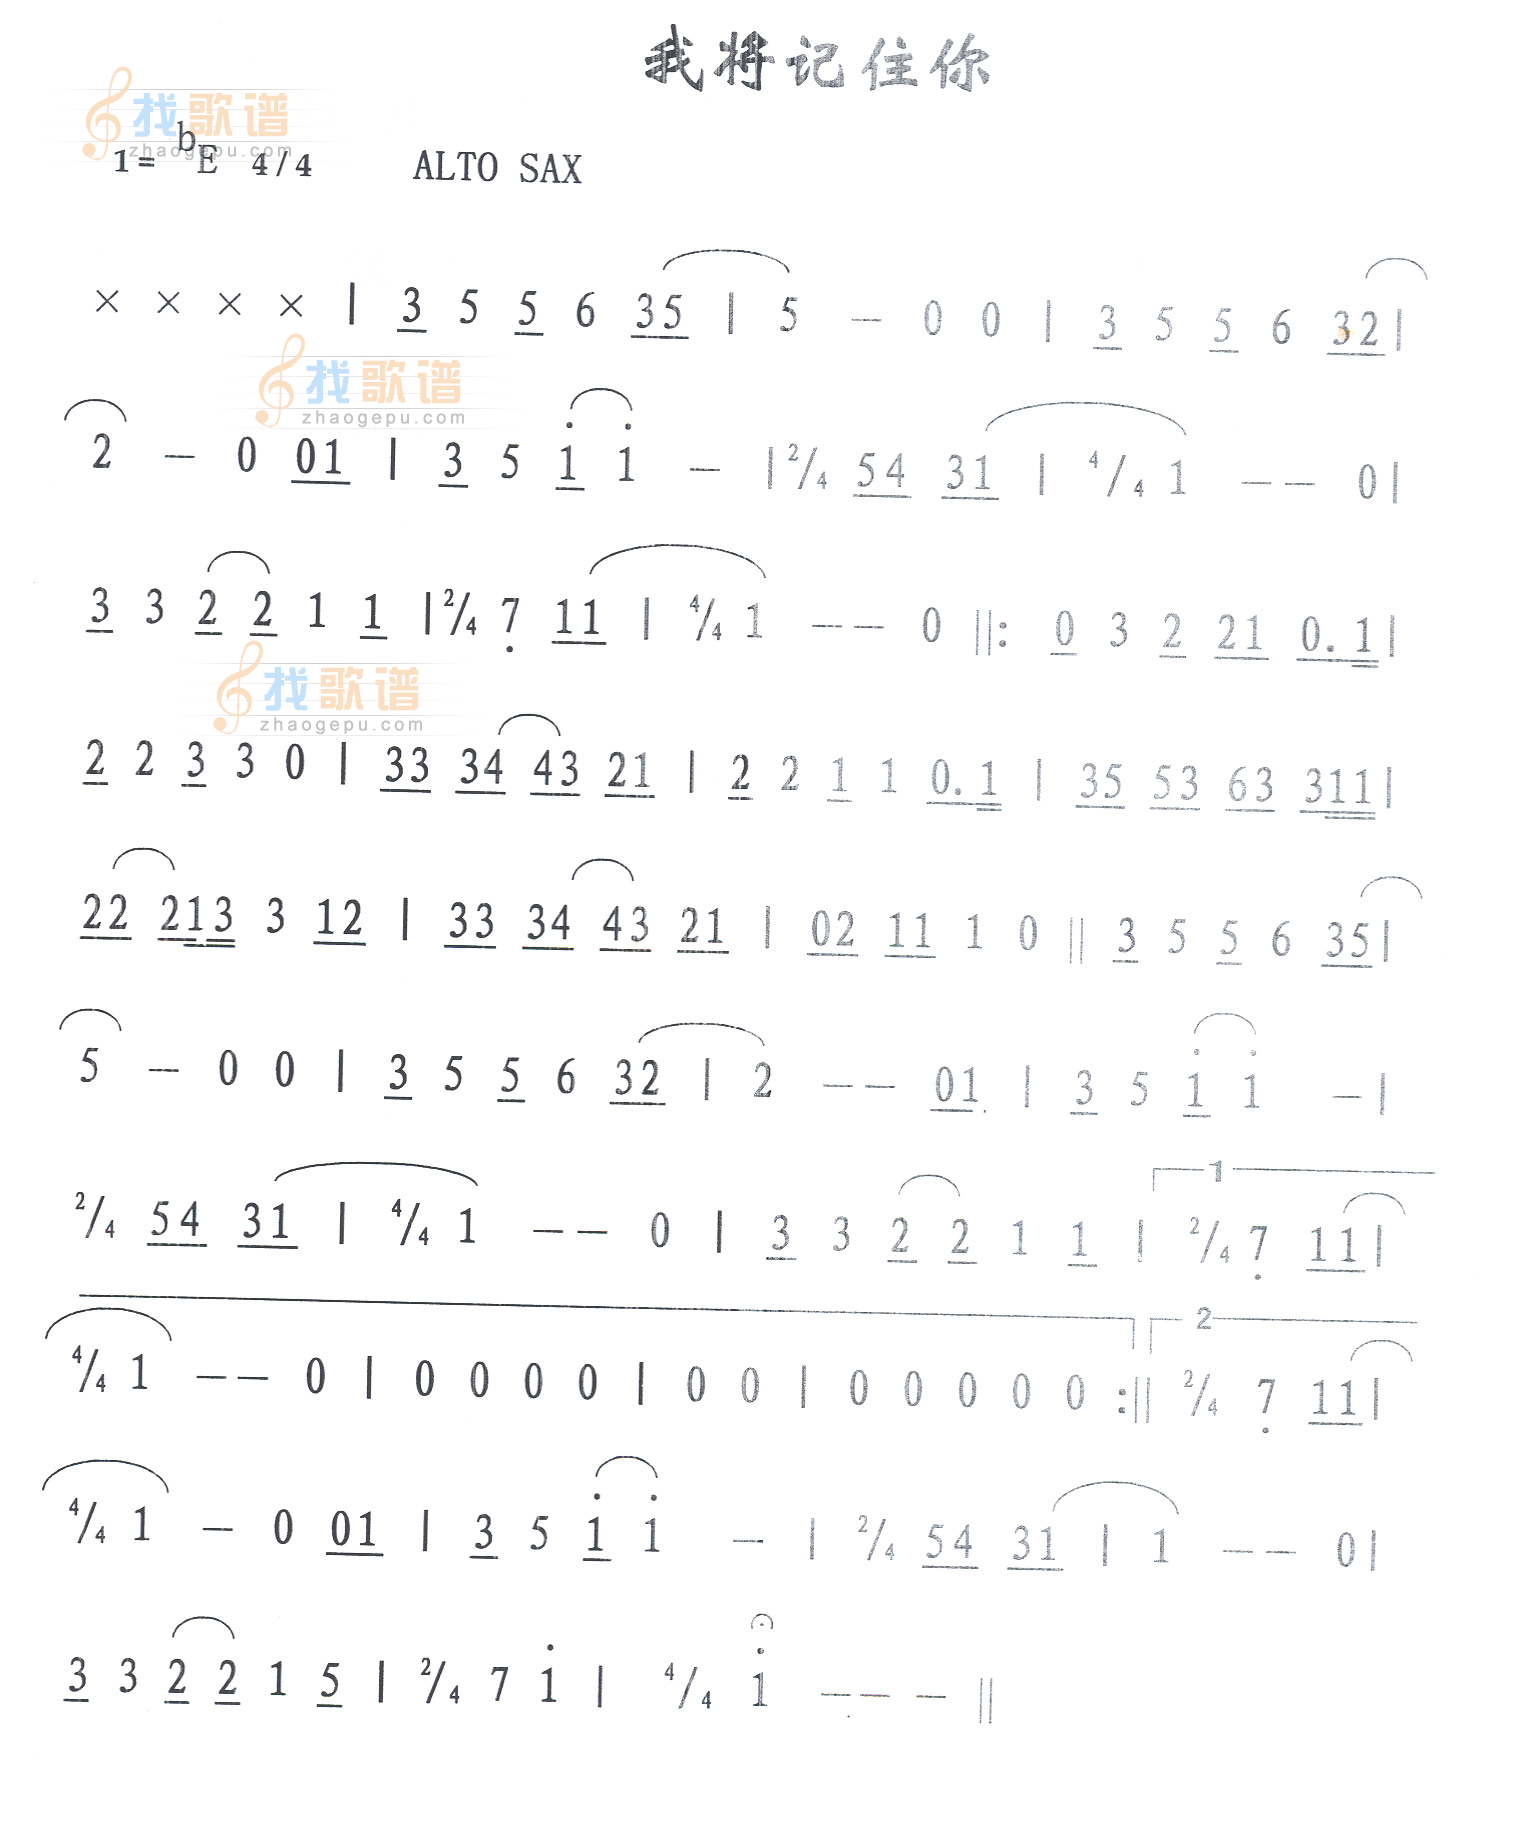 我将记住你
找歌谱
zhaogepu.com
1= bE 4/4 ALTO SAX
× × × × | 3 5 5 6 35 | 5 — 0 0 | 3 5 5 6 32 |
找歌谱
zhaogepu.com
2 — 0 01 | 3 5 1 1 — | 2/4 54 31 | 4/4 1 — — 0 |
3 3 2 2 1 1 | 2/4 7 11 | 4/4 1 — — 0 ||: 0 3 2 21 0.1 |
找歌谱
zhaogepu.com
2 2 3 3 0 | 33 34 43 21 | 2 2 1 1 0.1 | 35 53 63 311 |
22 213 3 12 | 33 34 43 21 | 02 11 1 0 || 3 5 5 6 35 |
5 — 0 0 | 3 5 5 6 32 | 2 — — 01 | 3 5 1 1 — |
1
2/4 54 31 | 4/4 1 — — 0 | 3 3 2 2 1 1 | 2/4 7 11 |
2
4/4 1 — — 0 | 0 0 0 0 | 0 0 | 0 0 0 0 0 :|| 2/4 7 11 |
4/4 1 — 0 01 | 3 5 1 1 — | 2/4 54 31 | 1 — — 0 |
3 3 2 2 1 5 | 2/4 7 1 | 4/4 1 — — — ||